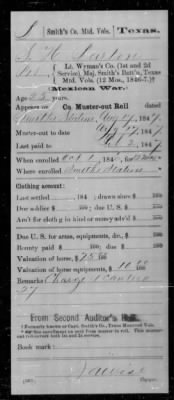 Smith's Co. Mtd. Vols. Texas.
(Lt. Wyman's Co. (1st and 2d
Service) Maj. Smith's Batt'n, Texas
Mtd. Vols. (12 Mos., 1846-7.)*
(Mexican War.)
Age years.
Appears on Co. Muster-out Roll dated
Smith's Station, Aug 17, 1847.
Muster-out to date 1847.
Last paid to 1847
When enrolled Oct 1, 184
Where enrolled Smith's Station
Clothing account:
Last settled , 184 ; drawn since $ 100
Due soldier $ 100; due U. S. $ 100
Am't for cloth'g in kind or money adv'd $ 100
Due U. S. for arms, equipments, &c., $ 100
Bounty paid $ 100; due $ 100
Valuation of horse, $ 75 100
Valuation of horse equipments, $ 10 100
Remarks: Charge 1 Canteen
27
From Second Auditor's Roll.
Book mark:
Copyist.